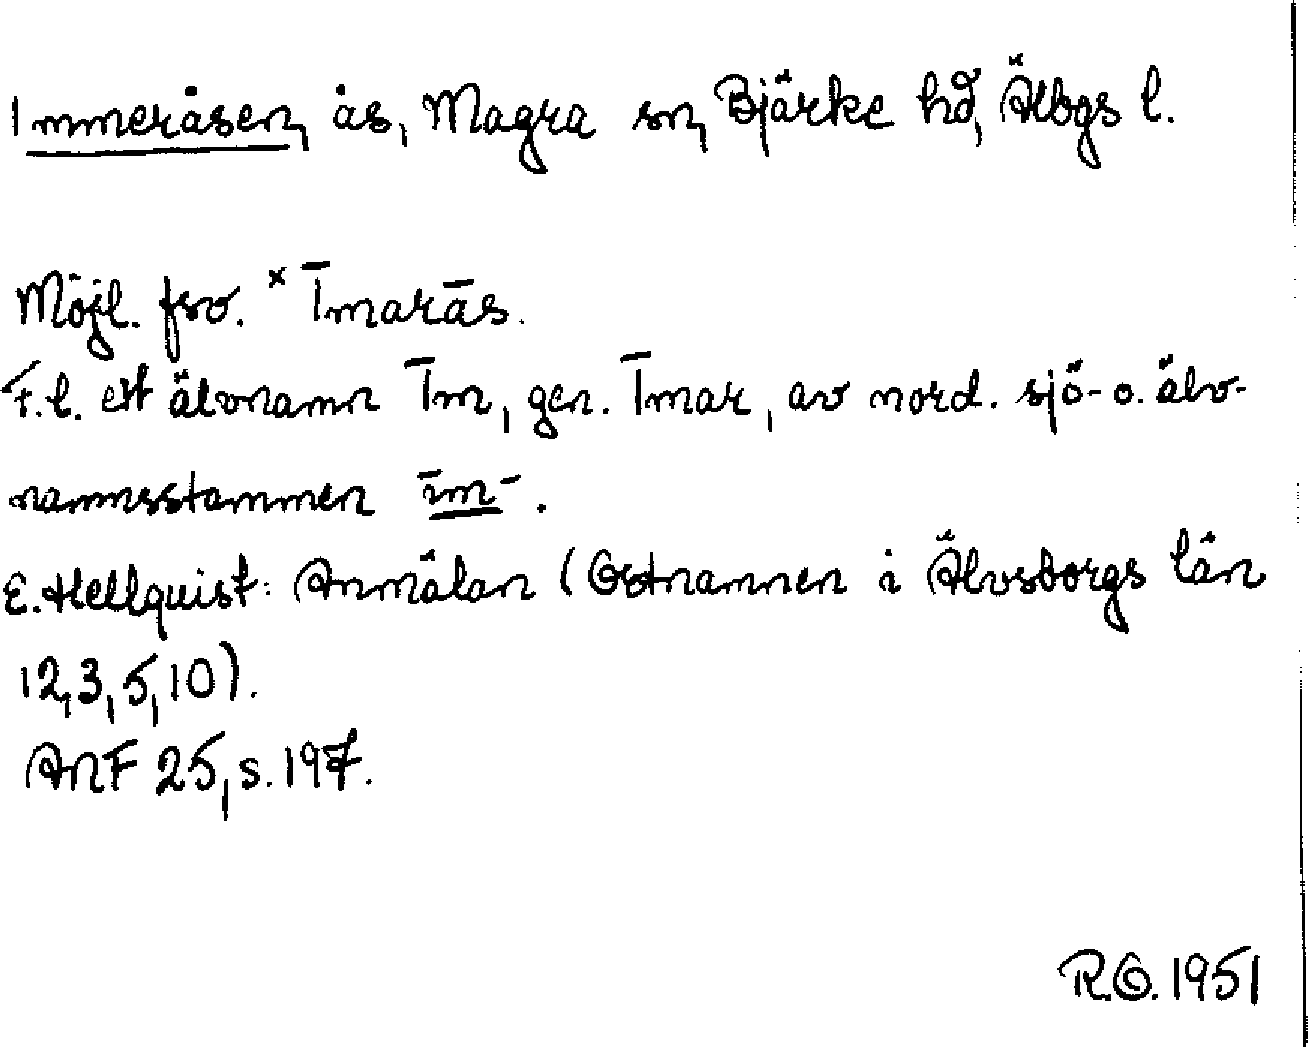 Immeråsen, ås, Magra sn, Bjärke hd, Älvbgs l.
Möjl. fsv. ˣĪmarās.
F.l. ett älvnamn Īm, gen. Īmar, av nord. sjö- o. älv-
namnsstammen īm-.
E. Hellquist: Anmälan (Ortnamnen i Älvsborgs län
12, 3, 5, 10).
ANF 25, s. 197.
R.O. 1951